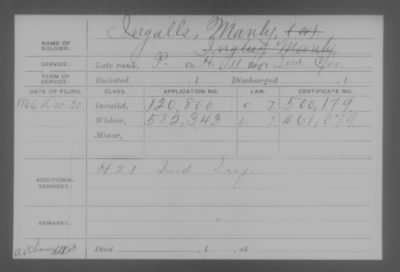 NAME OF SOLDIER: Ingalls, Manly,
Manly
SERVICE: Late rank, P. Co. H,
TERM OF SERVICE: Enlisted , 1 Discharged , 1
DATE OF FILING. CLASS. APPLICATION NO. LAW. CERTIFICATE NO.
Invalid, 120,800 500,179
Widow, 582,343 461,079
Minor,
ADDITIONAL SERVICES: H 21 Ind Inf.
REMARKS:
Died , 1 , at